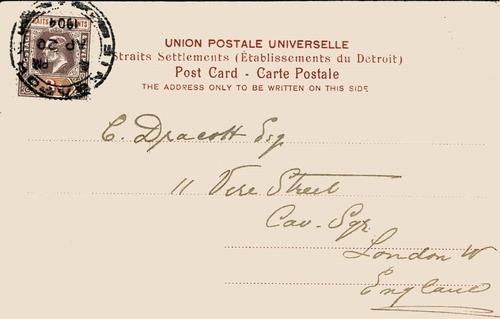 UNION POSTALE UNIVERSELLE
Straits Settlements (Établissements du Detroit)
Post Card - Carte Postale
THE ADDRESS ONLY TO BE WRITTEN ON THIS SIDE
C. Dracott Esq
11 Vere Street
Cav. Sqr.
London W
England
AP 20
PM
1904